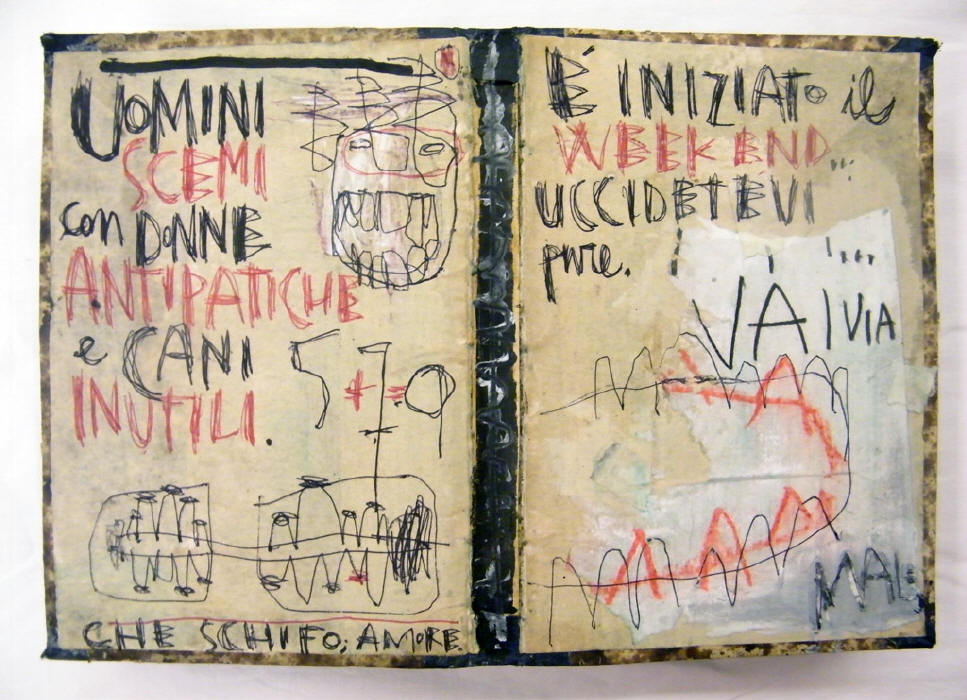 UOMINI
SCEMI
con DONNE
ANTIPATICHE
e CANI
INUTILI.
5 + 7 = 9
CHE SCHIFO; AMORE.
É INIZIATO il
WEEKEND...
UCCIDETEVI
pure.
VÀ VIA